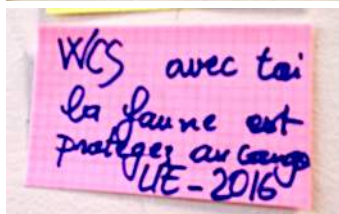 WCS avec toi
la faune est
protegez au congo
UE - 2016